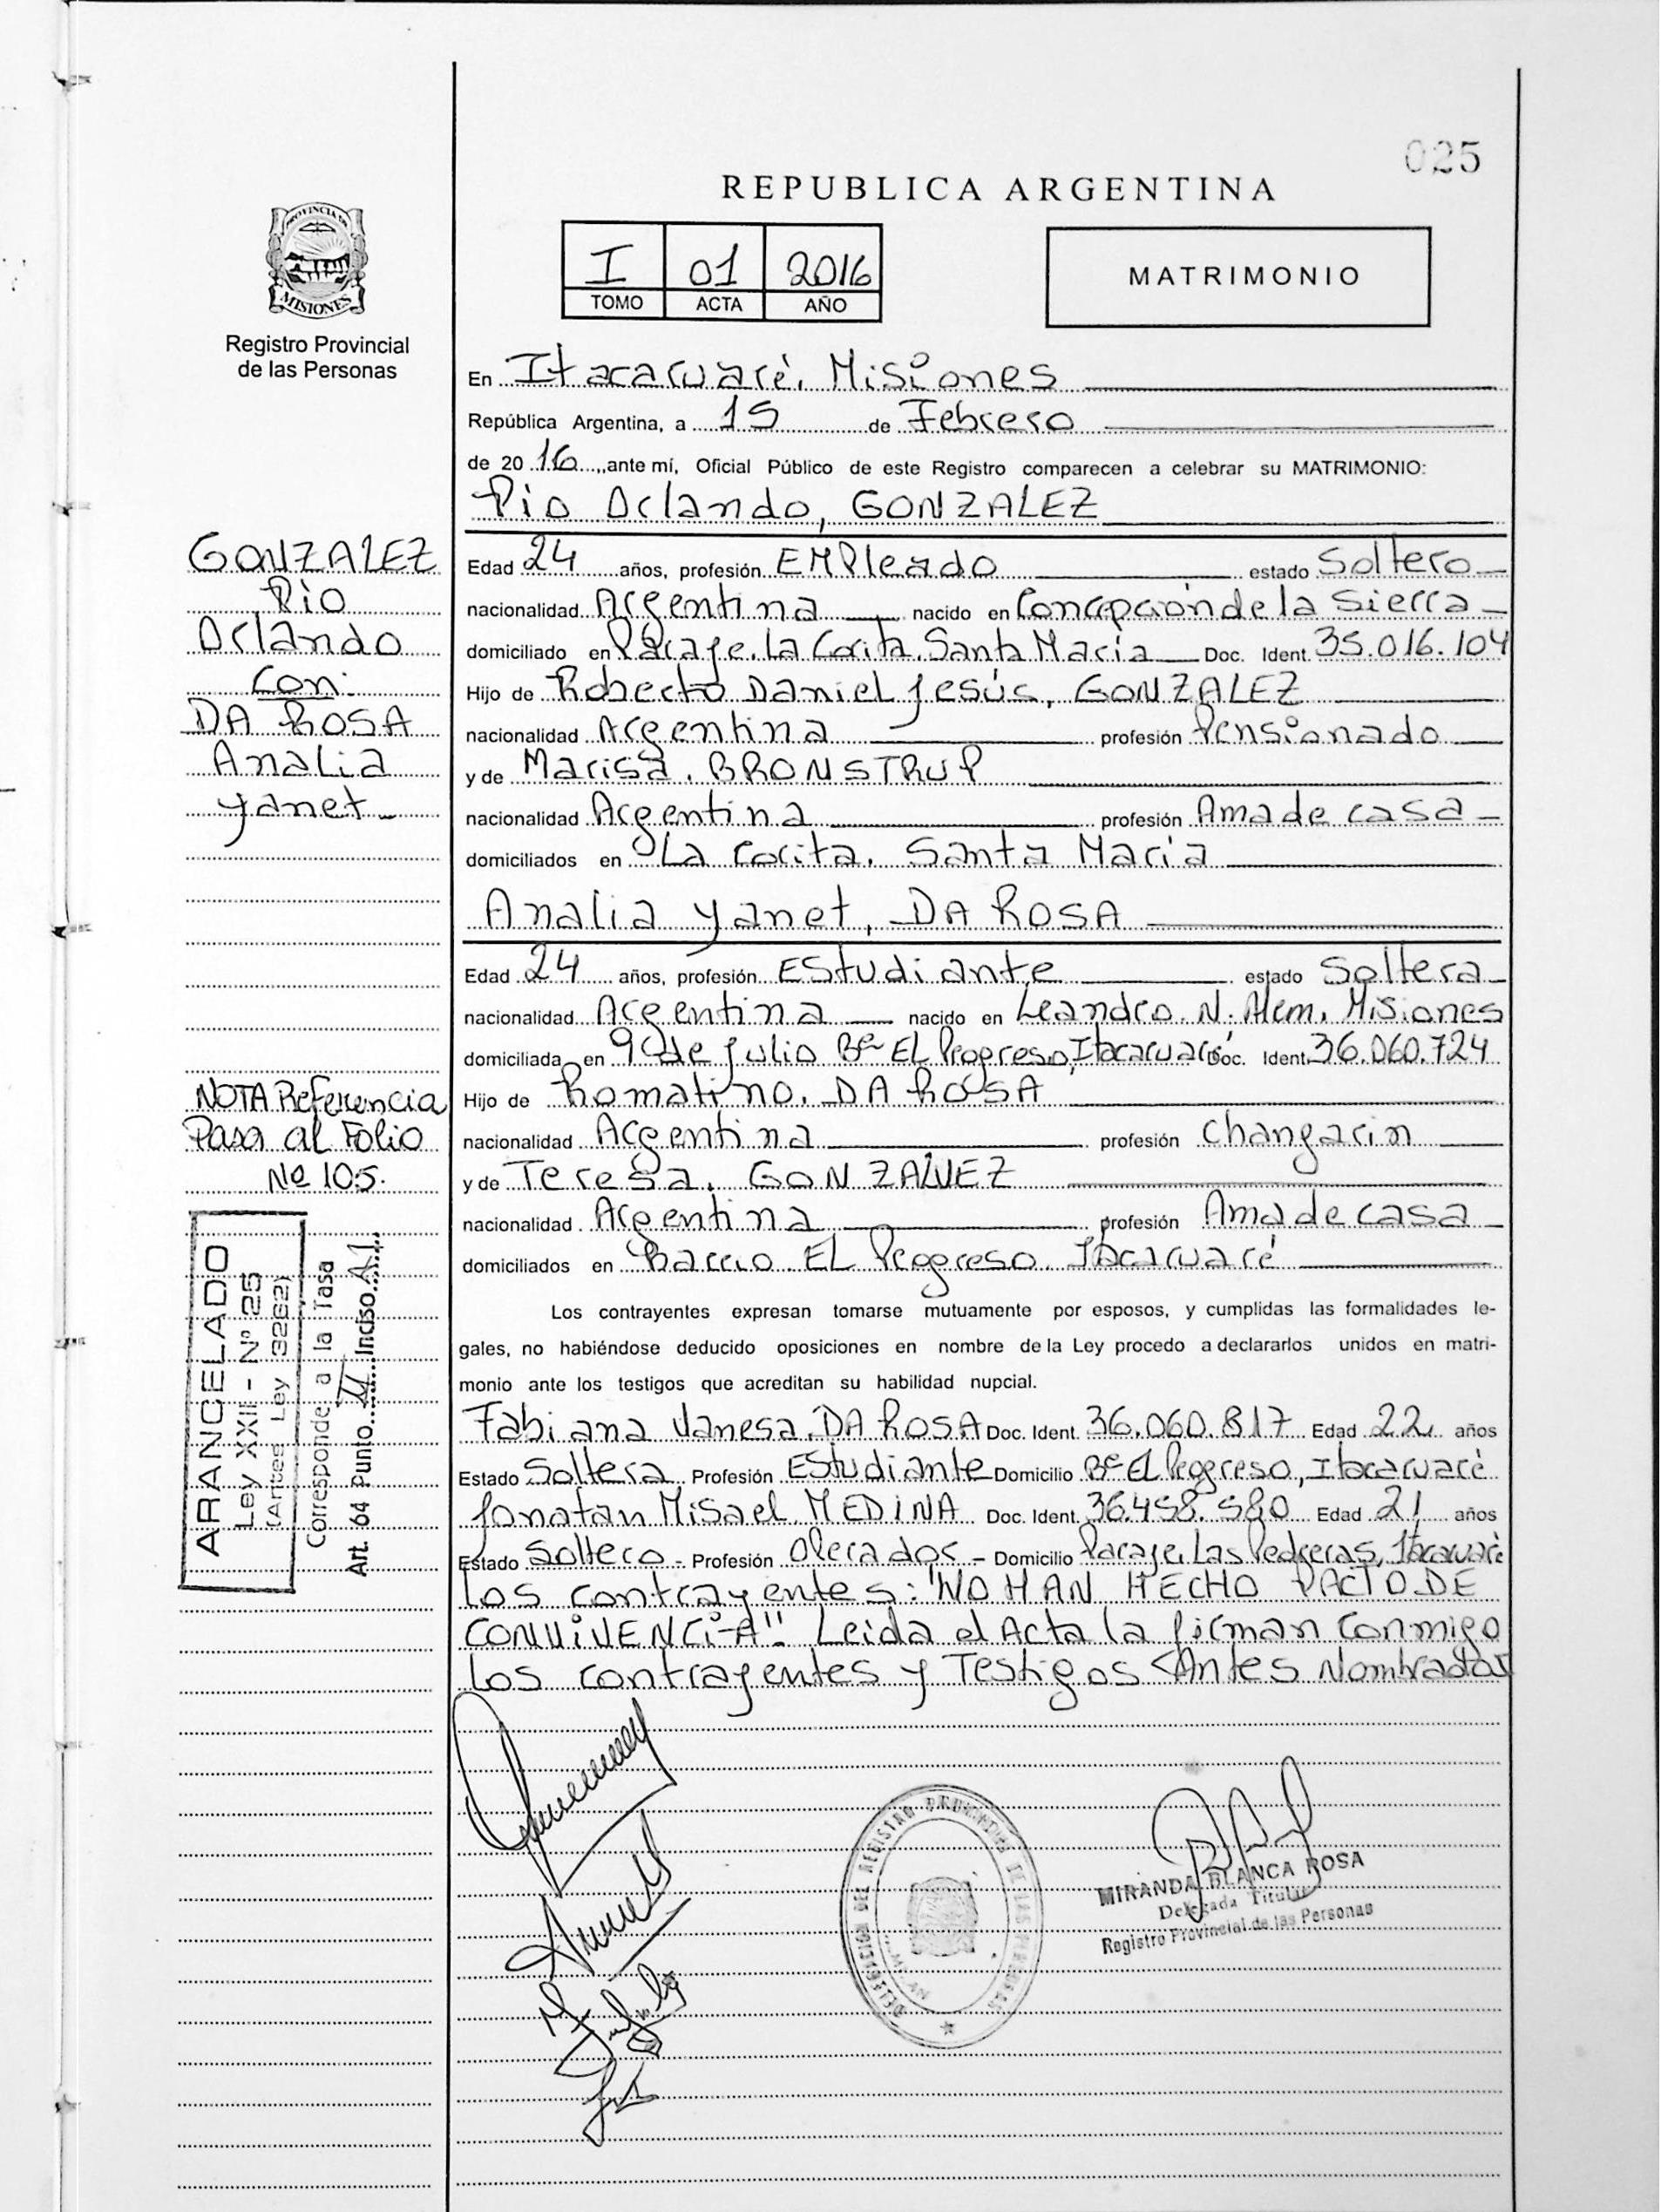 025
REPUBLICA ARGENTINA
I 01 2016
TOMO ACTA AÑO
MATRIMONIO
PROVINCIA DE
MISIONES
Registro Provincial
de las Personas
En Itacaruaré, Misiones
República Argentina, a 15 de Febrero
de 20 16 ,,ante mí, Oficial Público de este Registro comparecen a celebrar su MATRIMONIO:
Pio Orlando, GONZALEZ
GONZALEZ
Pio
Orlando
Con:
DA ROSA
Analia
Yanet
Edad 24 años, profesión EMPleado estado Soltero
nacionalidad Argentina nacido en Concepción de la Sierra
domiciliado en Paraje, La Corita, Santa María Doc. Ident. 35.016.104
Hijo de Roberto Daniel Jesús, GONZALEZ
nacionalidad Argentina profesión Pensionado
y de Marisa, BRONSTRUP
nacionalidad Argentina profesión Ama de casa
domiciliados en La Corita, Santa María
Analia Yanet, DA ROSA
Edad 24 años, profesión EStudiante estado Soltera
nacionalidad Argentina nacido en Leandro. N. Alem, Misiones
domiciliada en 9 de Julio Bº EL Progreso, Itacaruaré Doc. Ident. 36.060.724
Hijo de Romatino, DA ROSA
nacionalidad Argentina profesión Changarin
y de Teresa, GONZALVEZ
nacionalidad Argentina profesión Ama de casa
domiciliados en Barrio EL Progreso, Itacaruaré
NOTA Referencia
Pasa al Folio
Nº 105.
ARANCELADO
Ley XXII - Nº 25
(Antes Ley 3262)
Corresponde a la Tasa
Art. 64 Punto Inciso A1
Los contrayentes expresan tomarse mutuamente por esposos, y cumplidas las formalidades le-
gales, no habiéndose deducido oposiciones en nombre de la Ley procedo a declararlos unidos en matri-
monio ante los testigos que acreditan su habilidad nupcial.
Fabiana Vanesa, DA ROSA Doc. Ident. 36.060.817 Edad 22 años
Estado Soltera Profesión EStudiante Domicilio Bº EL Progreso, Itacaruaré
Jonatan Misael MEDINA Doc. Ident. 36.458.580 Edad 21 años
Estado Soltero - Profesión Operador - Domicilio Paraje, Las Pedreras, Itacaruaré
Los contrayentes: "NO HAN HECHO PACTO DE
CONViVENCiA". Leida el Acta la firman conmigo
Los contrayentes y Testigos Antes Nombrados
DELEGACION DEL REGISTRO PROVINCIAL DE LAS PERSONAS
MIRANDA BLANCA ROSA
Delegada Titular
Registro Provincial de las Personas